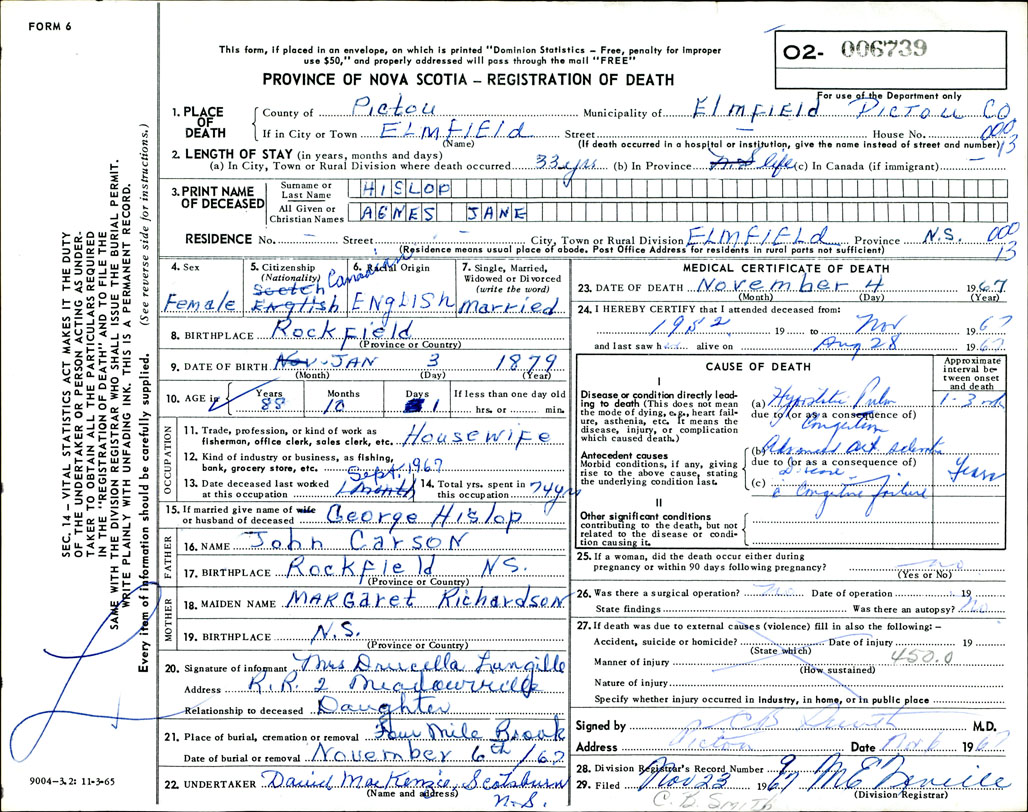 FORM 6
This form, if placed in an envelope, on which is printed "Dominion Statistics – Free, penalty for improper
use $50," and properly addressed will pass through the mail "FREE"
O2- 006739
PROVINCE OF NOVA SCOTIA – REGISTRATION OF DEATH
For use of the Department only
1. PLACE OF DEATH
County of Pictou Municipality of Elmfield Pictou Co
If in City or Town ELMFIEld Street – House No. 000
(Name) (If death occurred in a hospital or institution, give the name instead of street and number) 13
2. LENGTH OF STAY (in years, months and days)
(a) In City, Town or Rural Division where death occurred 33 yrs (b) In Province N.S life (c) In Canada (if immigrant) –
3. PRINT NAME OF DECEASED
Surname or Last Name HISLOP
All Given or Christian Names AGNES JANE
RESIDENCE No. – Street - City, Town or Rural Division ELMFIELD Province N.S. 000
(Residence means usual place of abode. Post Office Address for residents in rural parts not sufficient) 13
4. Sex
Female
5. Citizenship
(Nationality)
Canadian
Scotch
English
6. Racial Origin
ENGLISH
7. Single, Married,
Widowed or Divorced
(write the word)
Married
8. BIRTHPLACE Rockfield
(Province or Country)
9. DATE OF BIRTH Nov- JAN 3 1879
(Month) (Day) (Year)
10. AGE is
Years Months Days If less than one day old
88 10 1 hrs. or min.
OCCUPATION
11. Trade, profession, or kind of work as
fisherman, office clerk, sales clerk, etc. Housewife
12. Kind of industry or business, as fishing,
bank, grocery store, etc.
Sept. 1967
13. Date deceased last worked
at this occupation 1 month
14. Total yrs. spent in
this occupation 74 yrs
15. If married give name of wife
or husband of deceased George Hislop
FATHER
16. NAME John Carson
17. BIRTHPLACE Rockfield NS.
(Province or Country)
MOTHER
18. MAIDEN NAME MARGaret Richardson
19. BIRTHPLACE N.S.
(Province or Country)
20. Signature of informant Mrs Drucella Langille
Address R.R. 2 Meadowville
Relationship to deceased Daughter
21. Place of burial, cremation or removal Four Mile Brook
Date of burial or removal November 6th /67
22. UNDERTAKER David MacKenzie, Scotsburn
(Name and address) N.S.
MEDICAL CERTIFICATE OF DEATH
23. DATE OF DEATH November 4 1967
(Month) (Day) (Year)
24. I HEREBY CERTIFY that I attended deceased from:
1952 19 to Nov 1967
and last saw h alive on Aug 28 1967
CAUSE OF DEATH
Approximate interval between onset and death
I
Disease or condition directly leading to death (This does not mean the mode of dying, e.g., heart failure, asthenia, etc. It means the disease, injury, or complication which caused death.)
(a) Hypostatic Pulm 1-3
due to (or as a consequence of)
Congestion
Antecedent causes
Morbid conditions, if any, giving rise to the above cause, stating the underlying condition last.
(b) Advanced art sclerotic
due to (or as a consequence of) Years
Disease
(c) c Congestive failure
II
Other significant conditions
contributing to the death, but not related to the disease or condition causing it.
25. If a woman, did the death occur either during
pregnancy or within 90 days following pregnancy? no
(Yes or No)
26. Was there a surgical operation? no Date of operation 19
State findings Was there an autopsy? no
27. If death was due to external causes (violence) fill in also the following: –
Accident, suicide or homicide? Date of injury 19
(State which) 450.0
Manner of injury
(How sustained)
Nature of injury
Specify whether injury occurred in industry, in home, or in public place
Signed by C B Smith M.D.
Address Pictou Date Nov 6 1967
28. Division Registrar's Record Number 9
29. Filed Nov 23 1967
(Division Registrar)
C. B. SMITH
SEC. 14 – VITAL STATISTICS ACT MAKES IT THE DUTY
OF THE UNDERTAKER OR PERSON ACTING AS UNDER-
TAKER TO OBTAIN ALL THE PARTICULARS REQUIRED
IN THE "REGISTRATION OF DEATH" AND TO FILE THE
SAME WITH THE DIVISION REGISTRAR WHO SHALL ISSUE THE BURIAL PERMIT.
WRITE PLAINLY WITH UNFADING INK. THIS IS A PERMANENT RECORD.
Every item of information should be carefully supplied. (See reverse side for instructions.)
9004–3.2: 11-3-65